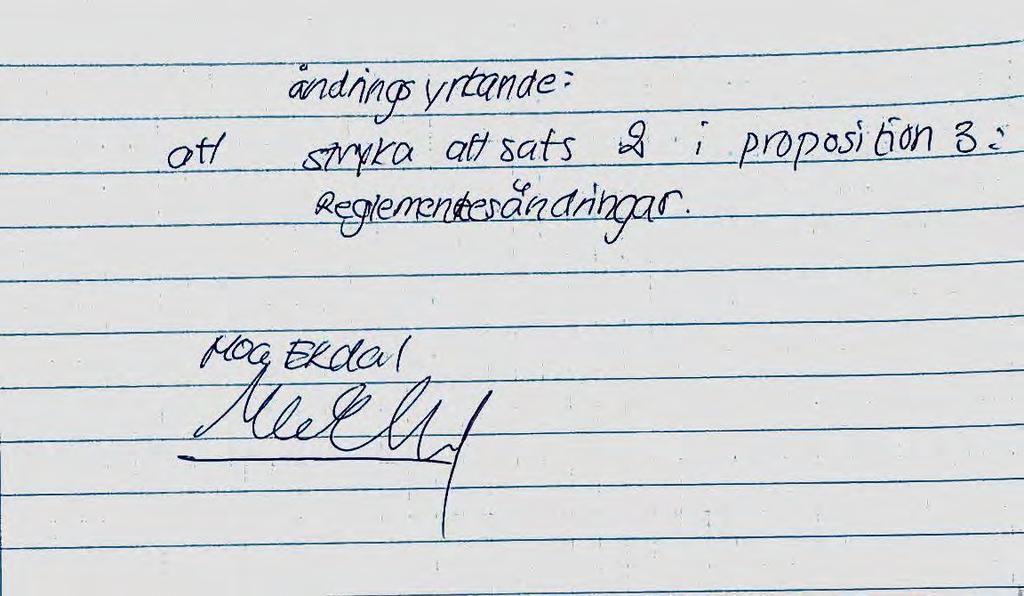 ändringsyrkande:
att stryka att sats 2 i proposition 3:
Reglementesändringar.
Moa Ekdal